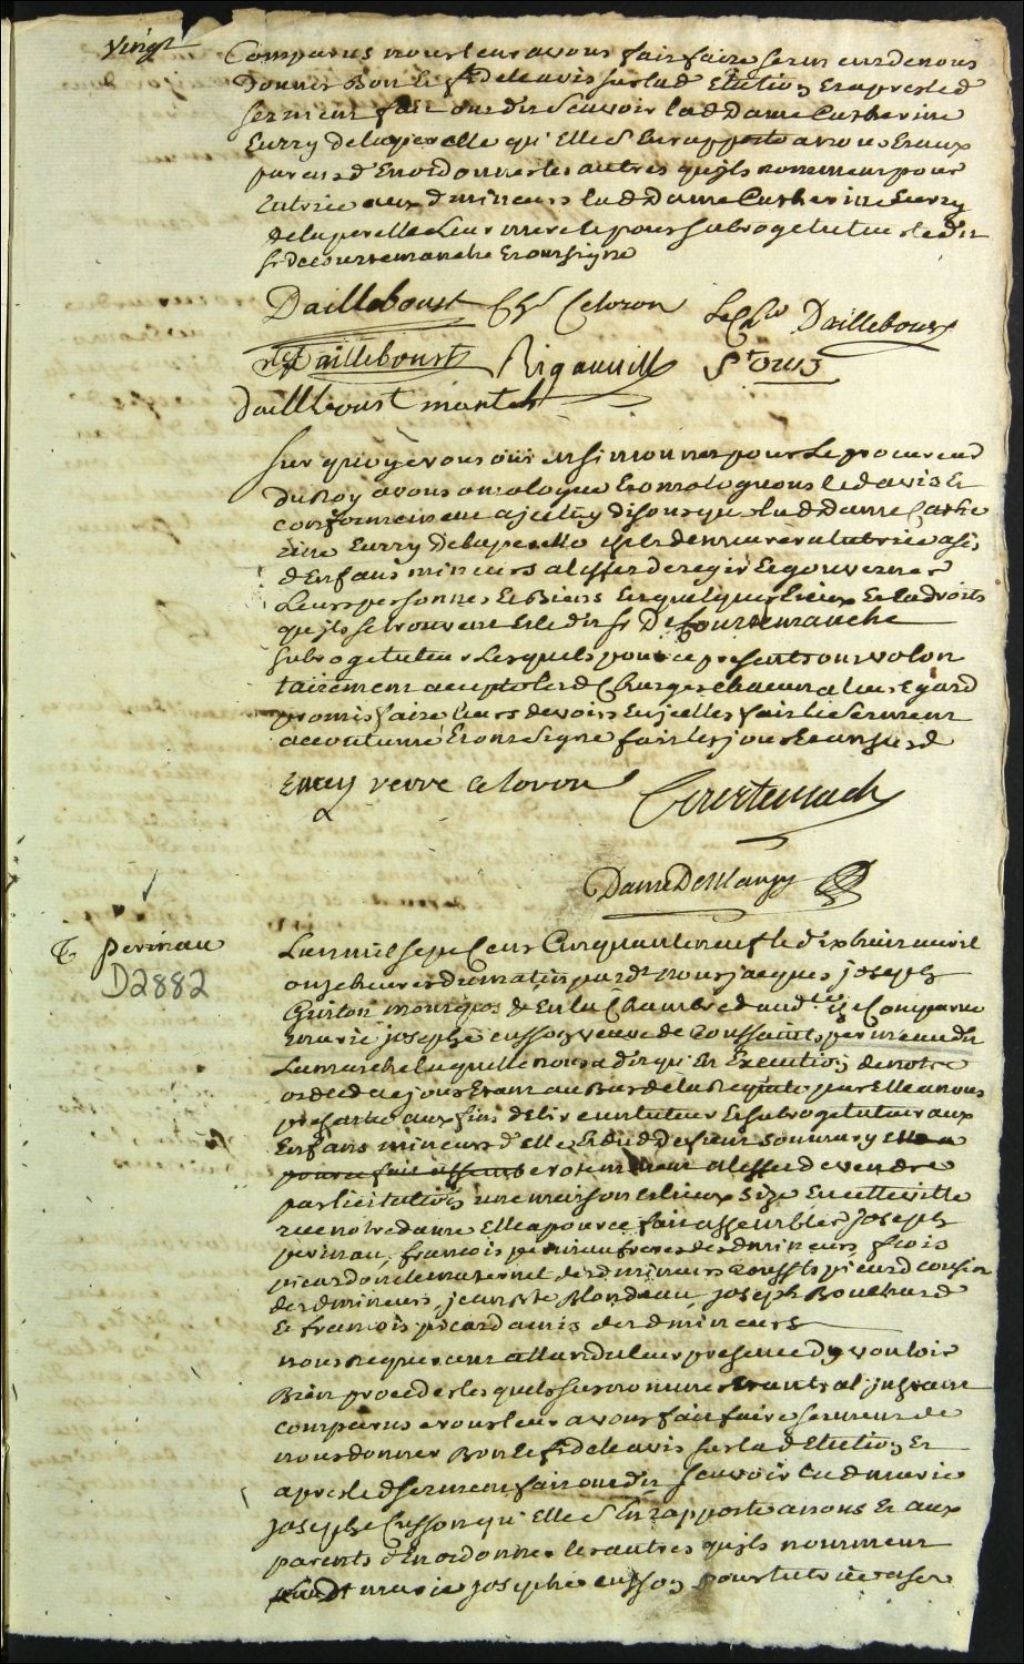 Vingt
Comparus nous leur avons fait faire serment de nous
Donner Bon & fidele avis sur lad Election Et apres led
serment fait ont dit scavoir lad Dame Catherine
Eurry delaperelle qu'Elle s'En rapporte a nous Et aux
parens d'En ordonner les autres qu'ils nomment pour
tutrice auxd mineurs lad Dame Catherine Eurry
delaperelle Leur mere & pour subroge tuteur led
sr decourtemanche Et ont signé
Dailleboust Chr Celoron Le Chr Dailleboust
Dailleboust Rigauville St ours
dailleboust mantet
sur quoy et nous oui monier pour Le procureur
Du Roy avons omologué Et omologuons led avis &
conformement a jceluy disons que lad Dame Cathe
rine Eurry Delaperelle est & demeurera tutrice a ses
d Enfans mineurs a l'effet de regir & gouverner
Leurs personnes & Biens En quelques Lieux & Endroits
qu'ils se trouvent & led sr De Courtemanche
subroge tuteur Lesquels pour ce presents ont volon
tairement accepté lesd Charges chacun a leur Egard
promis faire leurs devoirs En jcelles fait le serment
accoutumé Et ont signé fait les jour & an susd
Eury veuve celoron
Courtemach
Danré DeBlanzy
T perinau
D2882
L'an mil sept Cent Cinquante neuf le dix huit avril
onze heures du matin pard nous jacques joseph
Guiton monrepos & En la Chambre d'aud ce Est Comparue
marie josephe cusson veuve de Toussaint perineau dit
Lamarche laquelle nous a dit qu'En Execution de notre
ord de ce jour Etant au Bas de la Requête par Elle a nous
presentée aux fins d'Elire un tuteur & subroge tuteur aux
Enfans mineurs d'elle & dud Defunt
par licitation une maison & lieux size En cette ville
rue notre dame Elle a pour ce fait assembler Joseph
perinau, francois perinau freres desd mineurs, frois
picard oncle maternel desd mineurs picard cousin
desd mineurs, jean Bte Blondeau, joseph Bouchard
& francois picard amis desd mineurs
nous Requerant attendu leur presence d'y vouloir
Bien proceder lesquels susnommes Etants a l'jnstant
comparus nous leur avons fait faire serment de
nous donner Bon & fidele avis sur lad Election Et
apres led serment fait ont dit scavoir lad marie
josephe Cusson qu'Elle s'En rapporte a nous Et aux
parents d'En ordonner les autres qu'ils nomment
lad marie josephe cusson pour tutrice a ses